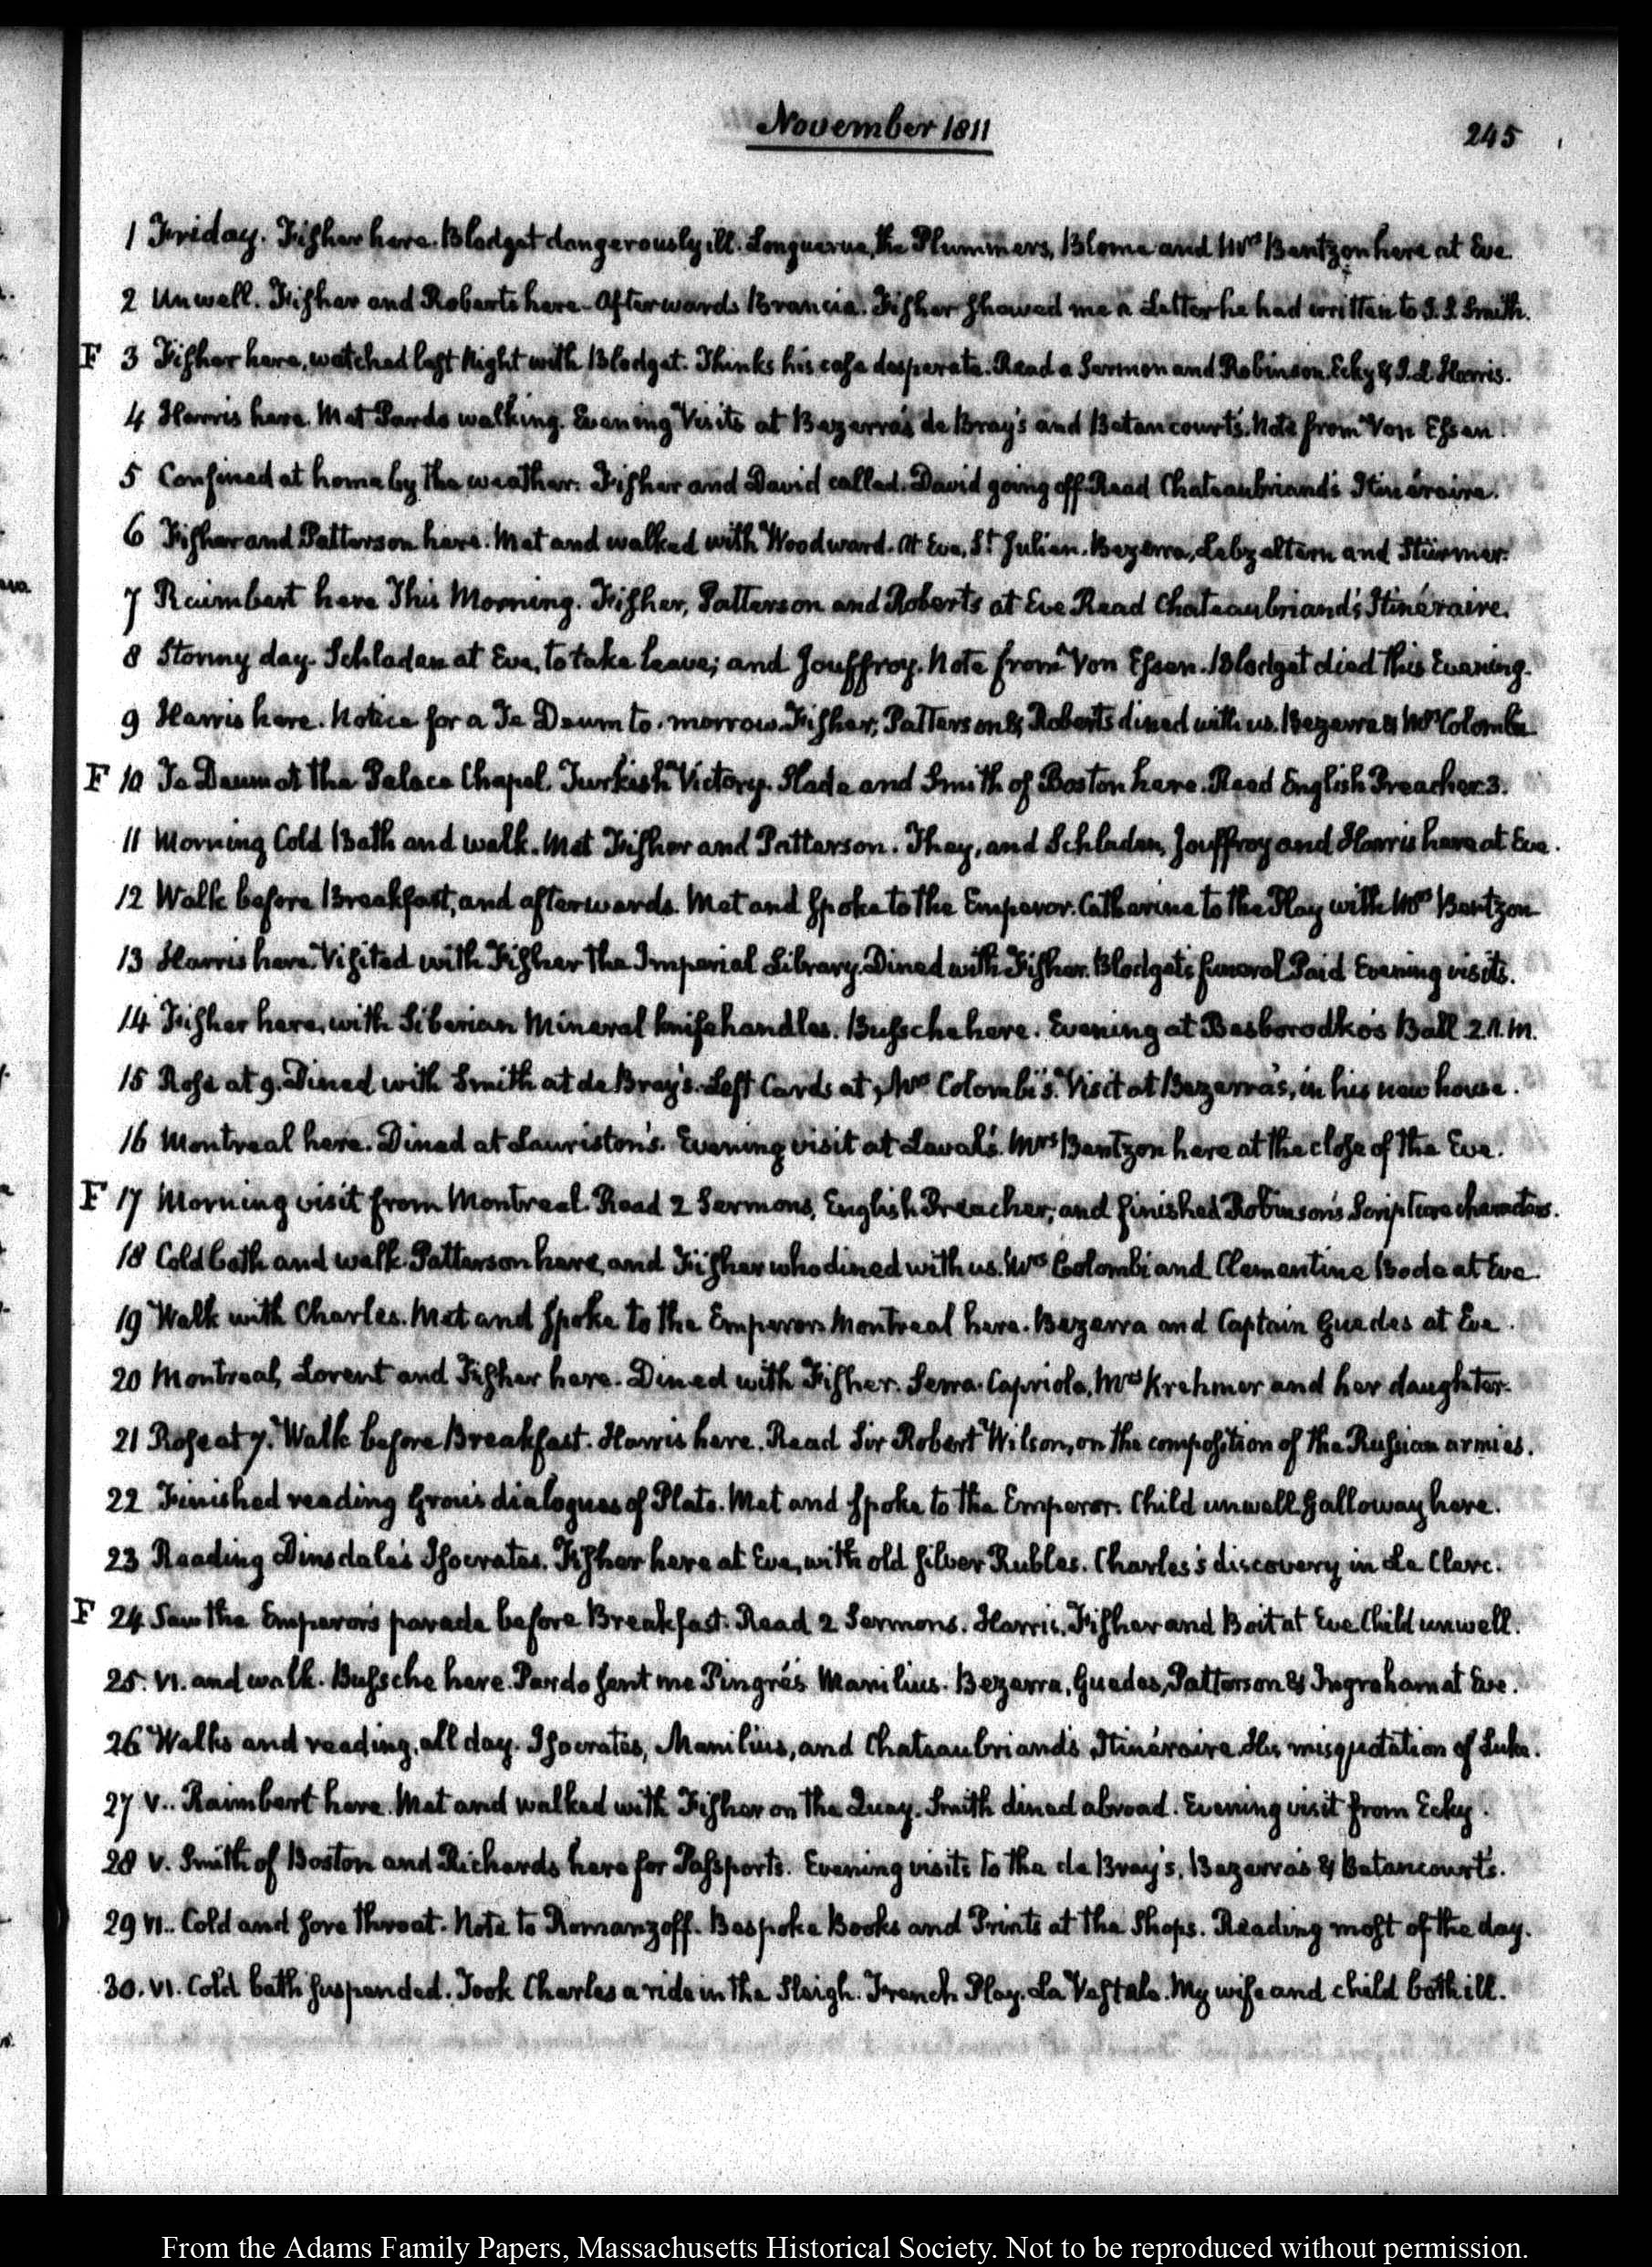 November 1811
245
1 Friday. Fisher here. Blodget dangerously ill. Longuerue, the Plummers, Blome and Mrs Bentzon here at Eve.
2 Unwell. Fisher and Roberts here. Afterwards Brancia. Fisher showed me a Letter he had written to J. S. Smith.
F 3 Fisher here, watched last Night with Blodget. Thinks his case desperate. Read a Sermon and Robinson. Ecky & J. L. Harris.
4 Harris here. Met Pardo walking. Evening Visits at Bezerra's de Bray's and Betancourt's. Note from Von Essen.
5 Confined at home by the weather. Fisher and David called. David going off. Read Chateaubriand's Itinéraire.
6 Fisher and Patterson here. Met and walked with Woodward. At Eve, St. Julien. Bezerra, Lebzeltern and Stürmer.
7 Raimbert here This Morning. Fisher, Patterson and Roberts at Eve Read Chateaubriand's Itinéraire.
8 Stormy day. Schladen at Eve, to take leave; and Jouffroy. Note from Von Essen. Blodget died this Evening.
9 Harris here. Notice for a Te Deum to-morrow. Fisher, Patterson & Roberts dined with us. Bezerra & Mrs Colombi.
F 10 Te Deum at the Palace Chapel. Turkish Victory. Slade and Smith of Boston here. Read English Preacher. 3.
11 Morning Cold Bath and walk. Met Fisher and Patterson. They, and Schladen, Jouffroy and Harris here at Eve.
12 Walk before Breakfast, and afterwards. Met and spoke to the Emperor. Catherine to the Play with Mrs Bentzon
13 Harris here. Visited with Fisher the Imperial Library. Dined with Fisher. Blodget's funeral Paid Evening visits.
14 Fisher here, with Siberian Mineral knife handles. Bussche here. Evening at Besborodko's Ball 2. A.M.
15 Rose at 9. Dined with Smith at de Bray's. Left Cards at Mrs Colombi's. Visit at Bezerra's, in his new house.
16 Montreal here. Dined at Lauriston's. Evening visit at Laval's. Mrs Bentzon here at the close of the Eve.
F 17 Morning visit from Montreal. Read 2 Sermons, English Preacher; and finished Robinson's Scripture characters.
18 Cold bath and walk. Patterson here, and Fisher who dined with us. Mrs Colombi and Clementine Bode at Eve.
19 Walk with Charles. Met and spoke to the Emperor. Montreal here. Bezerra and Captain Guedes at Eve.
20 Montreal, Lorent and Fisher here. Dined with Fisher. Serra-Capriola, Mrs Krehmer and her daughter.
21 Rose at 7. Walk before Breakfast. Harris here. Read Sir Robert Wilson, on the composition of the Russian armies.
22 Finished reading Grou's dialogues of Plato. Met and spoke to the Emperor. Child unwell. Galloway here.
23 Reading Dinsdale's Isocrates. Fisher here at Eve, with old silver Rubles. Charles's discovery in Le Clerc.
F 24 Saw the Emperor's parade before Breakfast. Read 2 Sermons. Harris, Fisher and Boit at Eve Child unwell.
25. VI. and walk. Bussche here. Pardo sent me Pingré's Manilius. Bezerra, Guedes, Patterson & Ingraham at Eve.
26 Walks and reading, all day. Isocrates, Manilius, and Chateaubriand's Itinéraire. His misquotation of Luke.
27 V.. Raimbert here. Met and walked with Fisher on the Quay. Smith dined abroad. Evening visit from Ecky.
28 V. Smith of Boston and Richards here for Passports. Evening visits to the de Bray's, Bezerra's & Betancourt's.
29 VI.. Cold and sore throat. Note to Romanzoff. Bespoke Books and Prints at the Shops. Reading most of the day.
30. VI. Cold bath suspended. Took Charles a ride in the Sleigh. French Play. La Vestale. My wife and child both ill.
From the Adams Family Papers, Massachusetts Historical Society. Not to be reproduced without permission.